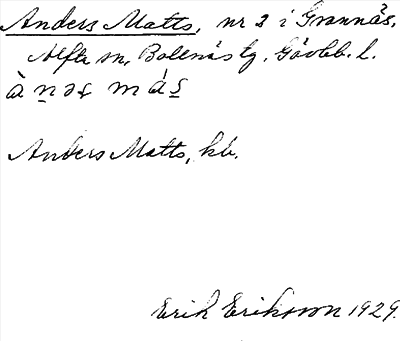 Anders Matts, nr 2 i Grannäs,
Alfta sn, Bollnäs tg. Gävleb. l.
à n̠ əs̠ m ás̠
Anders Matts, kb.
Erik Eriksson 1929.